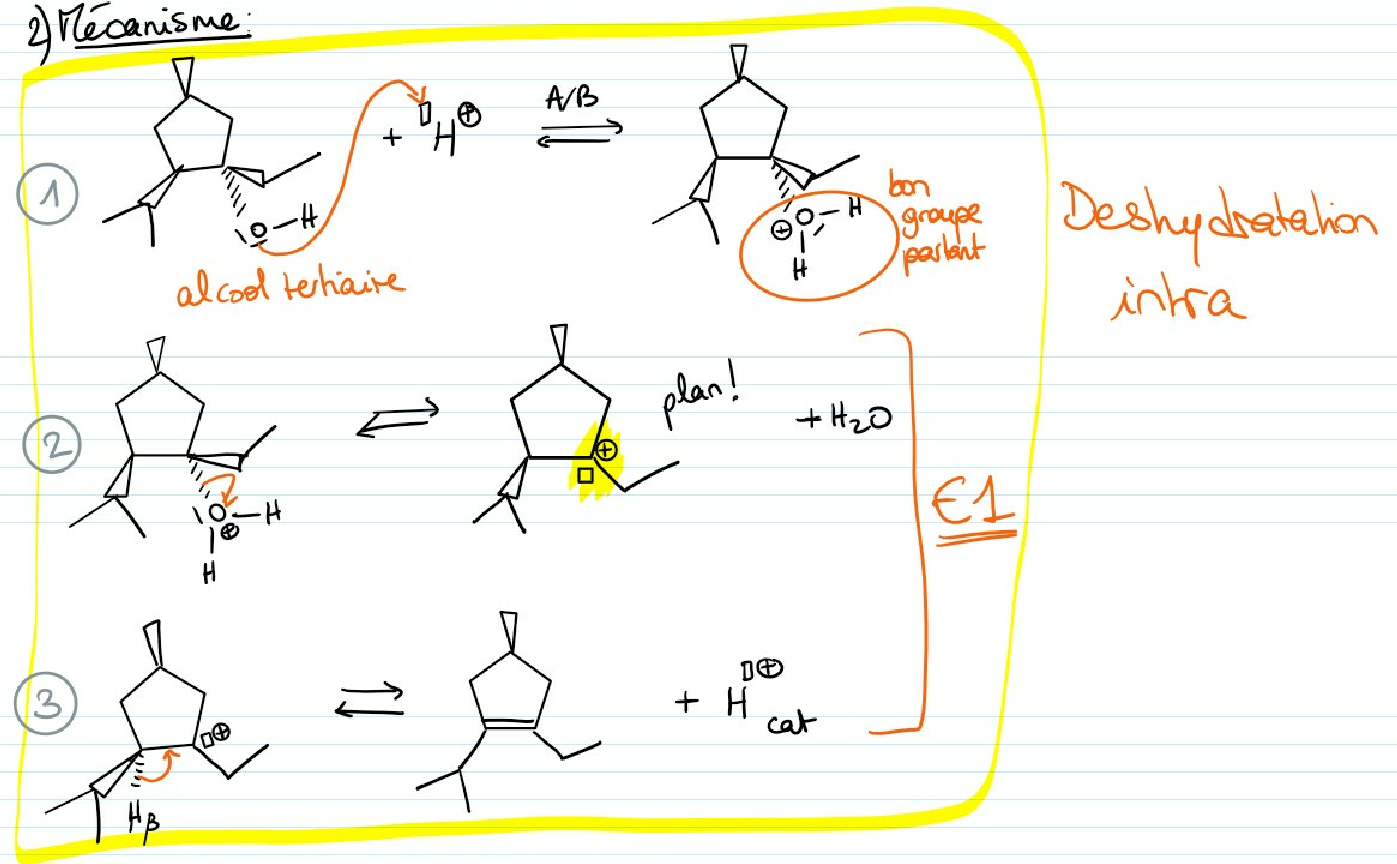 2) Mécanisme:
1
+ H⊕
A/B
O-H
alcool tertiaire
⊕ O-H
H
bon
groupe
partant
Deshydratation
intra
2
O-H
⊕
H
⊕
plan!
+ H₂O
E1
3
⊕
Hβ
+ H⊕
cat